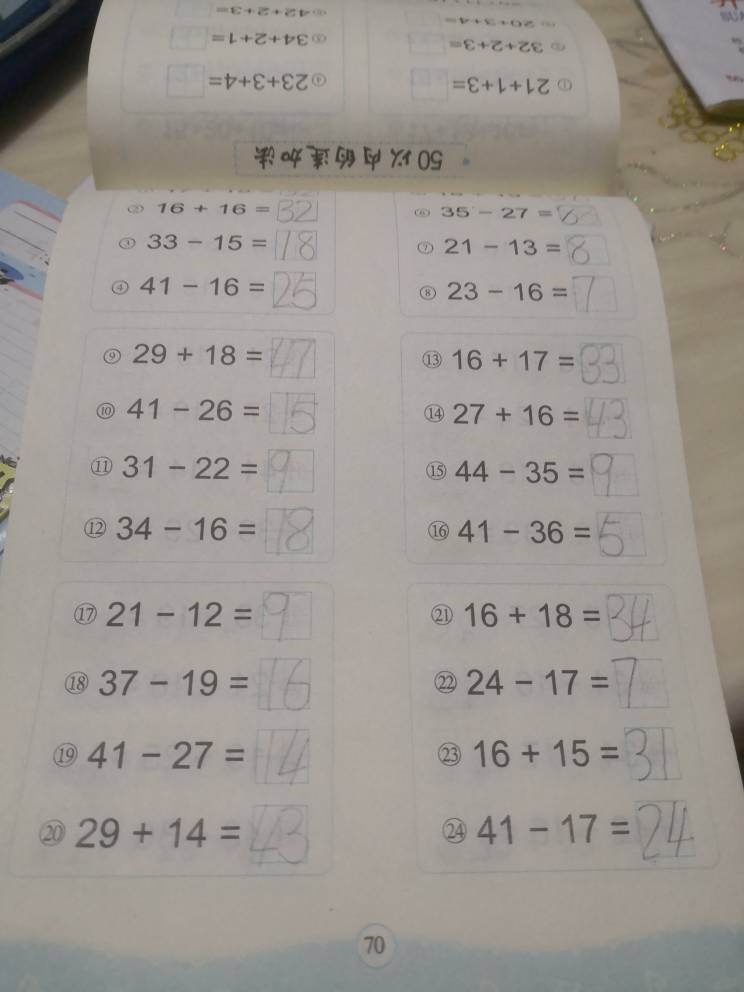 ④42+2+3=
③20+3+4=
③34+2+1=
②32+2+3=
④23+3+4=
①21+1+3=
50以内的连加法
② 16 + 16 = 32
⑥ 35 - 27 = 8
③ 33 - 15 = 18
⑦ 21 - 13 = 8
④ 41 - 16 = 25
⑧ 23 - 16 = 7
⑨ 29 + 18 = 47
⑬ 16 + 17 = 33
⑩ 41 - 26 = 15
⑭ 27 + 16 = 43
⑪ 31 - 22 = 9
⑮ 44 - 35 = 9
⑫ 34 - 16 = 18
⑯ 41 - 36 = 5
⑰ 21 - 12 = 9
㉑ 16 + 18 = 34
⑱ 37 - 19 = 16
㉒ 24 - 17 = 7
⑲ 41 - 27 = 14
㉓ 16 + 15 = 31
⑳ 29 + 14 = 43
㉔ 41 - 17 = 24
70